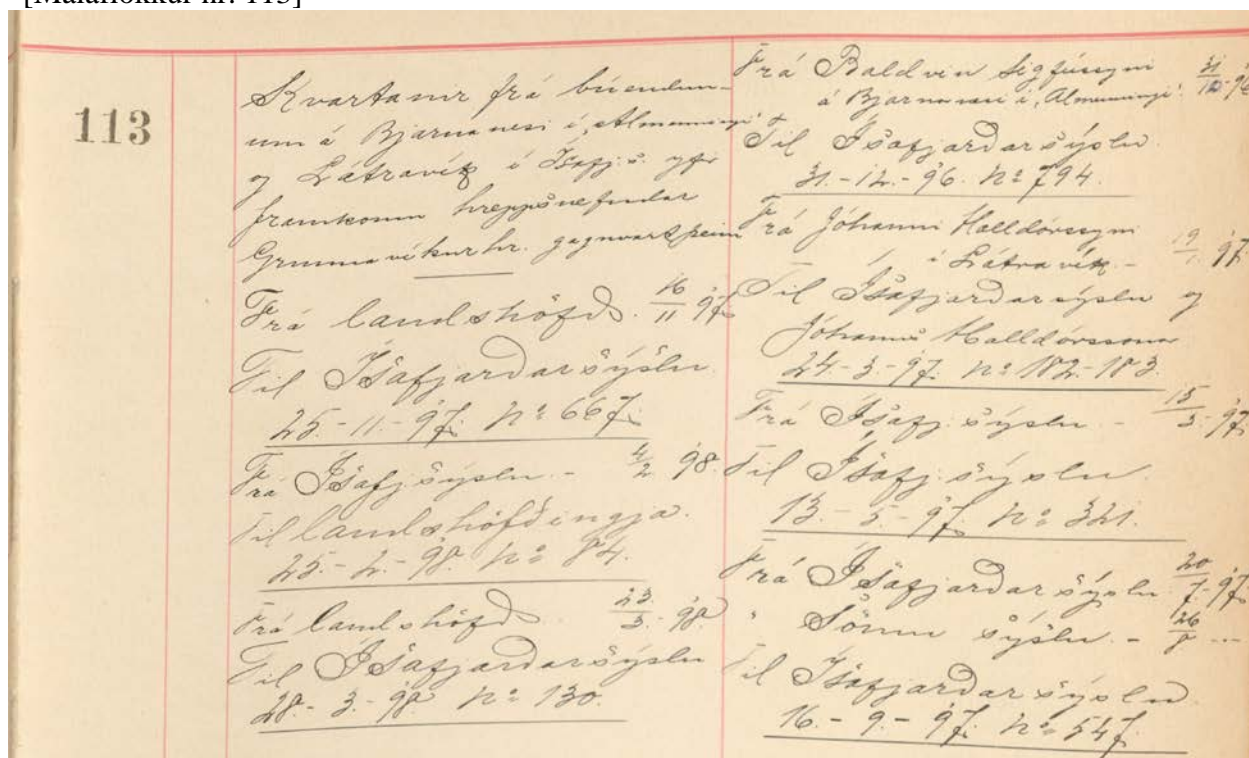 [Málaflokkur nr. 113]
113
Kvartanir frá búendun-
um á Bjarnanesi í „Almenningi“
og Látravík í Ísafj.s. yfir
framkomu hreppsnefndar
Grunnavíkurhr. gagnvart þeim
Frá landshöfð. 16/11 97.
Til Ísafjarðarsýslu
25.-11.-97. No 667.
Frá Ísafj.sýslu - 4/2 98.
Til landshöfðingja.
25.-2.-98. No 84.
Frá landshöfð. 23/3 - 98.
Til Ísafjarðarsýslu
28.-3.-98. No 130.
Frá Baldvin Sigfússyni 31/10-96
á Bjarnanesi í „Almenningi“.
Til Ísafjarðarsýslu.
31.-12.-96. No 794.
Frá Jóhanni Halldórssyni
í Látravík. - 19/1 97.
Til Ísafjarðarsýslu og
Jóhanns Halldórssonar
24-3-97. No 182-183.
Frá Ísafj.sýslu - 15/3-97.
Til Ísafj.sýslu.
13.-5.-97. No 321.
Frá Ísafjarðarsýslu 20/7-97.
" Sömu sýslu. - 26/8 - "
Til Ísafjarðarsýslu
16.-9.-97. No 547.